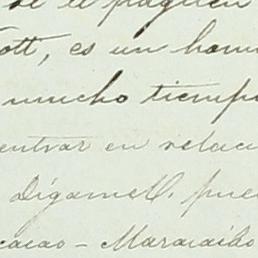 se le paguen
ott, es un hom
mucho tiempo
entrar en relac
Dígame U. pue
cacao - Maracaibo